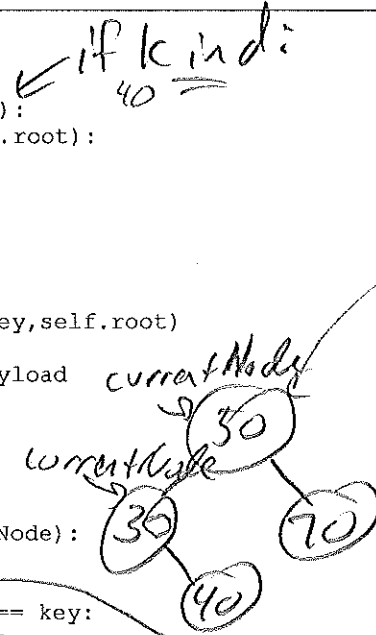 if k in d:
40
):
.root):
ey,self.root)
yload currentNode
50
currentNode
30
70
Node):
40
== key: